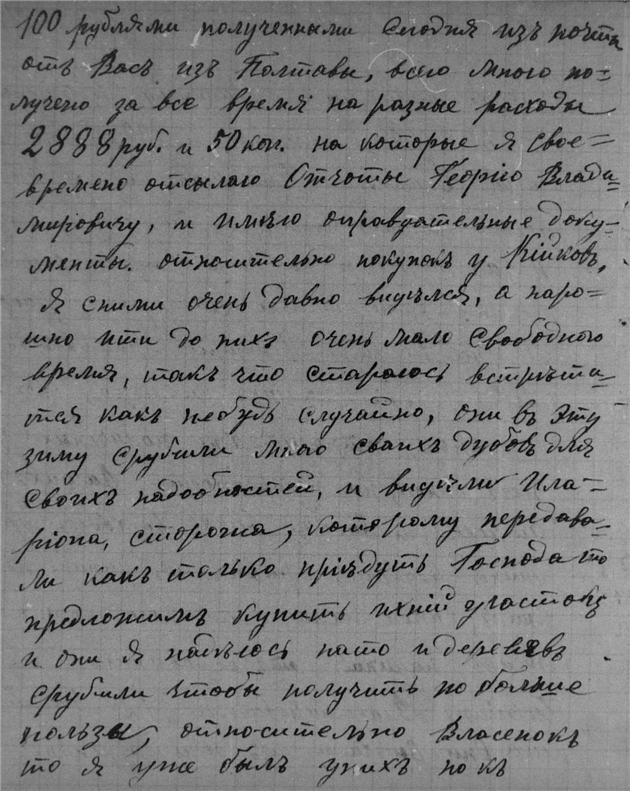 100 рублями полученными сегодня изъ почты
отъ Васъ изъ Полтавы, всего мною по=
лучено за все время на разные расходы
2888 руб. и 50 коп. на которые я свое=
времено отсылаю Отчоты Георгію Влади=
мировичу, и имѣю оправдательные доку=
менты. относительно покупокъ у Кійковъ,
я сними очень давно видѣлся, а наро=
шно ити до нихъ очень мало свободного
время, такъ что стараюсь встрѣти=
тся какъ небудь случайно, они въ эту
зиму срубили много сваихъ дубовъ для
своихъ надобностей, и видѣли Ила=
ріона, сторожа, которому передава=
ли какъ только пріѣдутъ Господа то
предложимъ купить ихній участокъ
и они я надѣюсь нато и деревьевъ
срубили чтобы получить по больше
пользы, относительно Власенокъ
то я уже былъ унихъ но къ